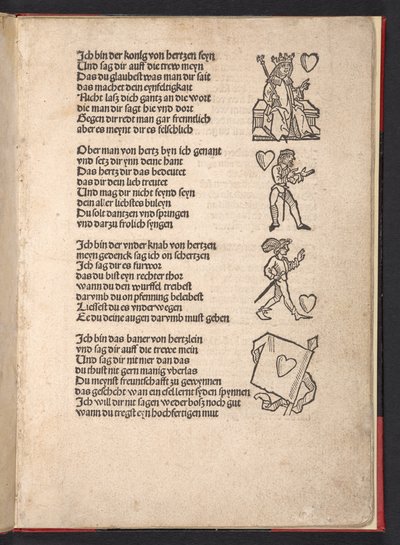 Ich bin der konig von hertzen feyn
Und sag dir auff die trew meyn
Das du glaubest was man dir sait
das machet dein eynfeltigkait
Nicht lasz dich gantz an die wort
die man dir sagt hie vnd dort
Gegen dir redt man gar frentlich
aber es meynt dir es felschlich
Ober man von hertz byn ich genant
vnd setz dir ynn deine hant
Das hertz dir das bedeutet
das dir dein lieb treutet
Und mag dir nicht feynd seyn
dein aller liebstes buleyn
Du solt dantzen vnd springen
vnd darzu frolich syngen
Ich bin der vnder knab von hertzen
meyn gedenck sag ich on schertzen
Ich sag dir es furwor
das du bist eyn rechter thor
wann du den wurffel treibest
darvmb du on pfenning beleibest
Liessest du es vnderwegen
Ee du deine augen darvmb must geben
Ich bin das baner von hertzlein
vnd sag dir auff die trewe mein
Und sag dir nit mer dan das
du thust nit gern manig vberlas
Du meynst freuntschafft zu gewynnen
das geschcht wan ein esel lernt syden spynnen
Ich will dir nit sagen weder bosz noch gut
wann du tregst eyn hochfertigen mut